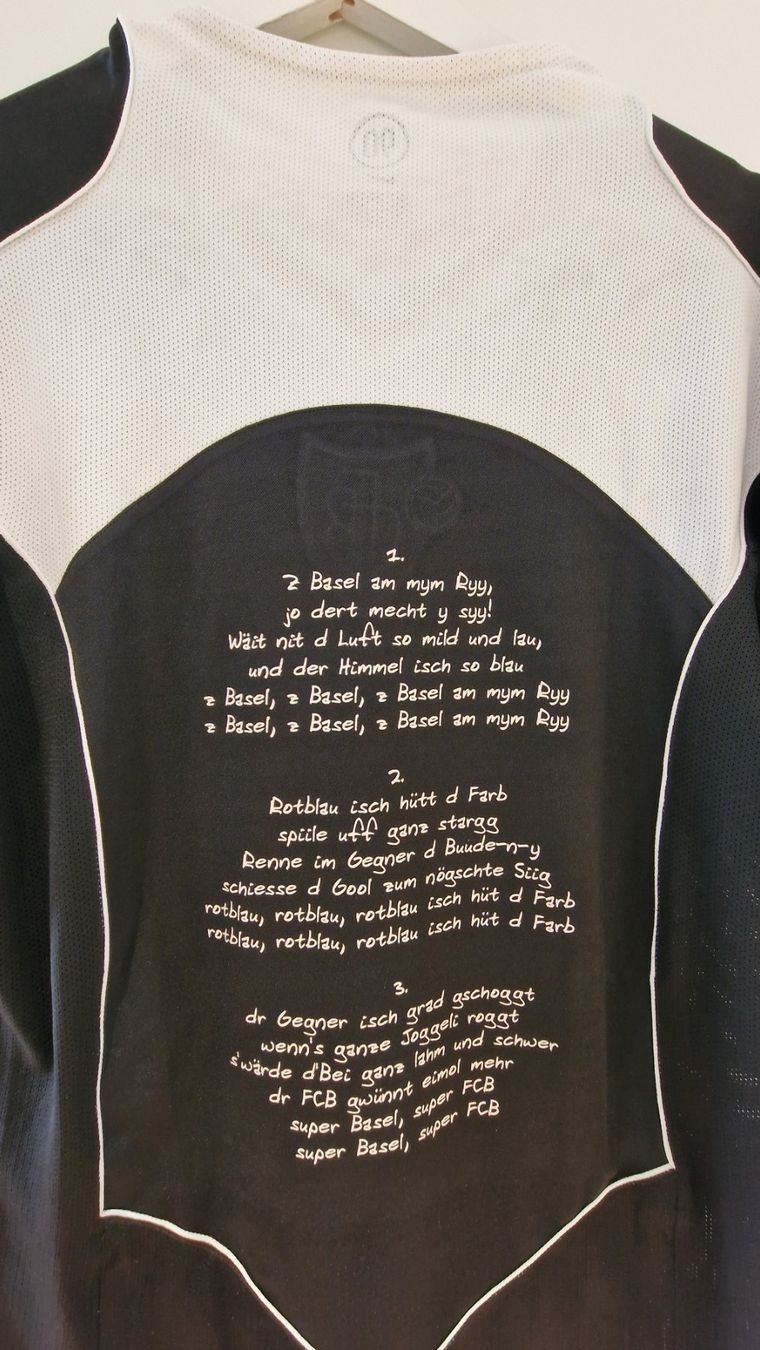 1.
Z Basel am mym Ryy,
jo dert mecht y syy!
Wäit nit d Luft so mild und lau,
und der Himmel isch so blau
z Basel, z Basel, z Basel am mym Ryy
z Basel, z Basel, z Basel am mym Ryy
2.
Rotblau isch hütt d Farb
spiile uff ganz stargg
Renne im Gegner d Buude-n-y
schiesse d Gool zum nögschte Siig
rotblau, rotblau, rotblau isch hüt d Farb
rotblau, rotblau, rotblau isch hüt d Farb
3.
dr Gegner isch grad gschoggt
wenn's ganze Joggeli roggt
s'wärde d'Bei ganz lahm und schwer
dr FCB gwünnt eimol mehr
super Basel, super FCB
super Basel, super FCB